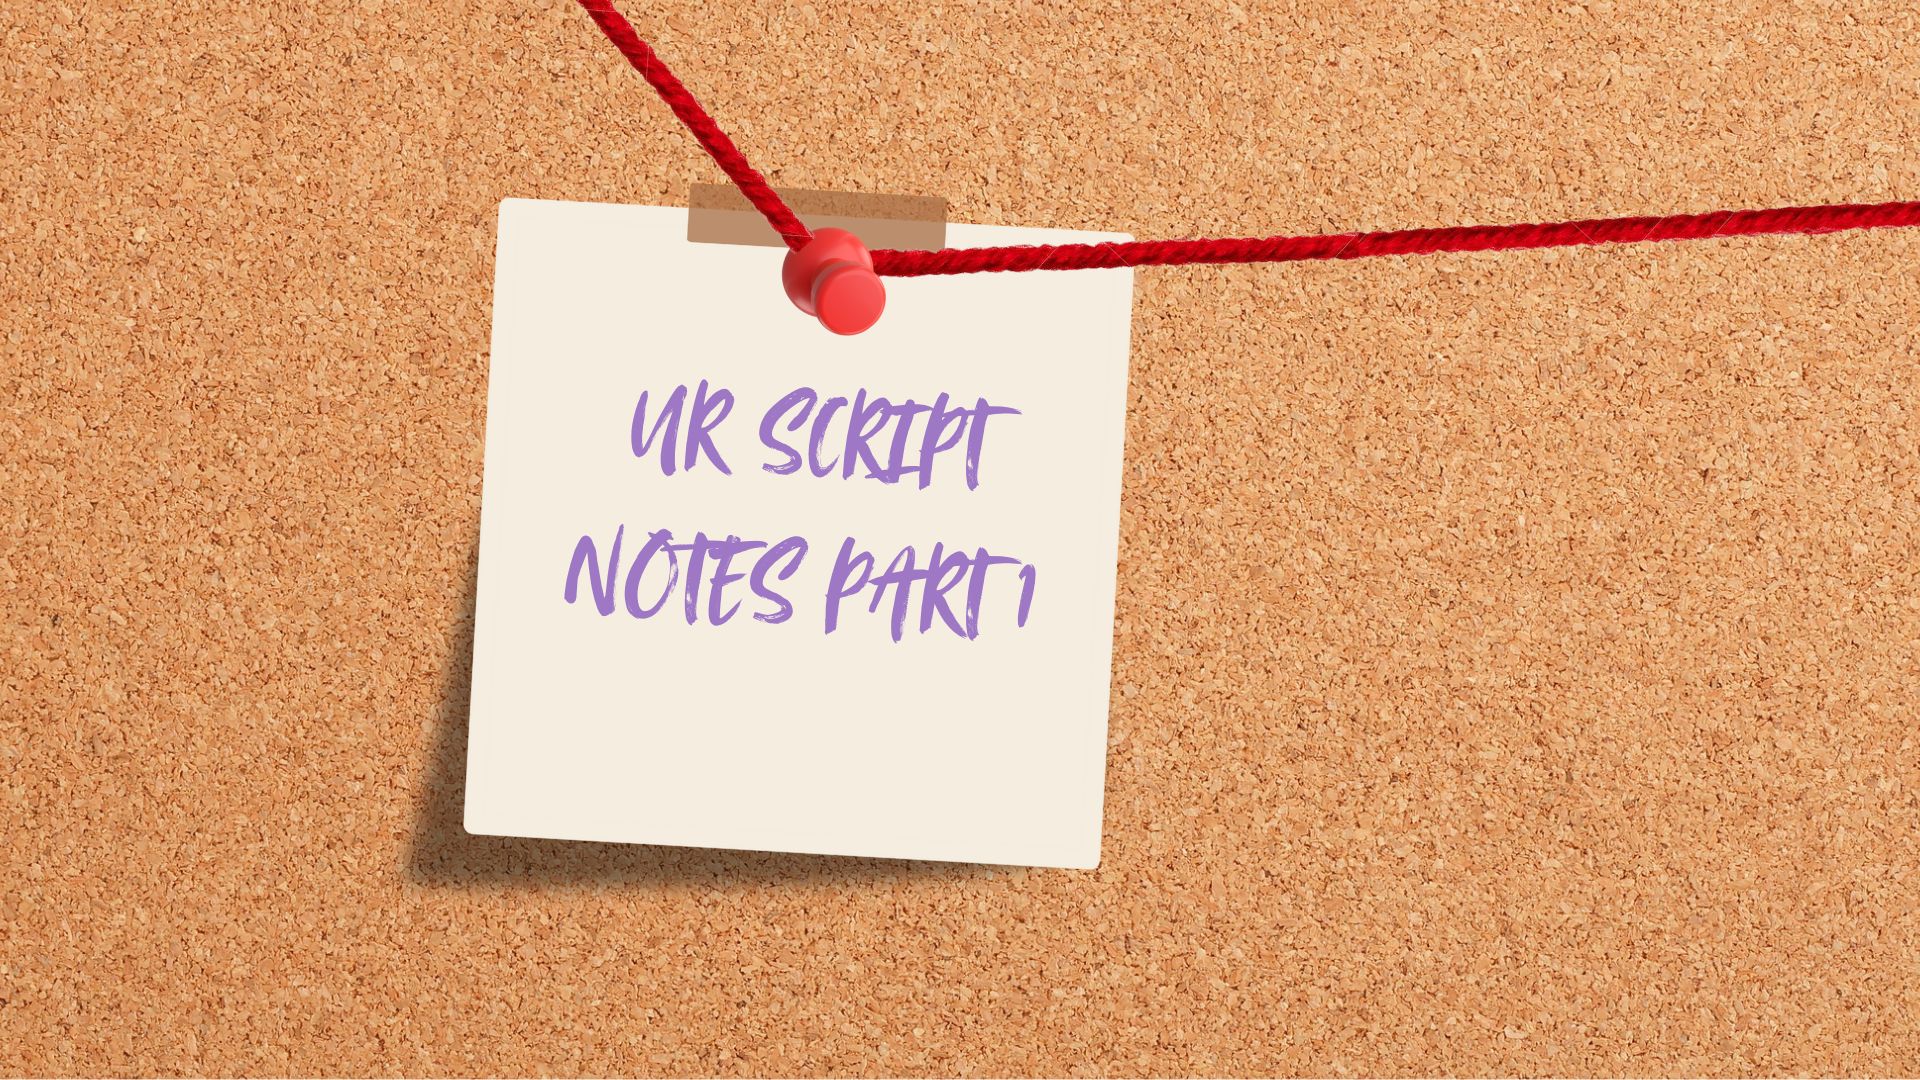 UR SCRIPT
NOTES PART 1